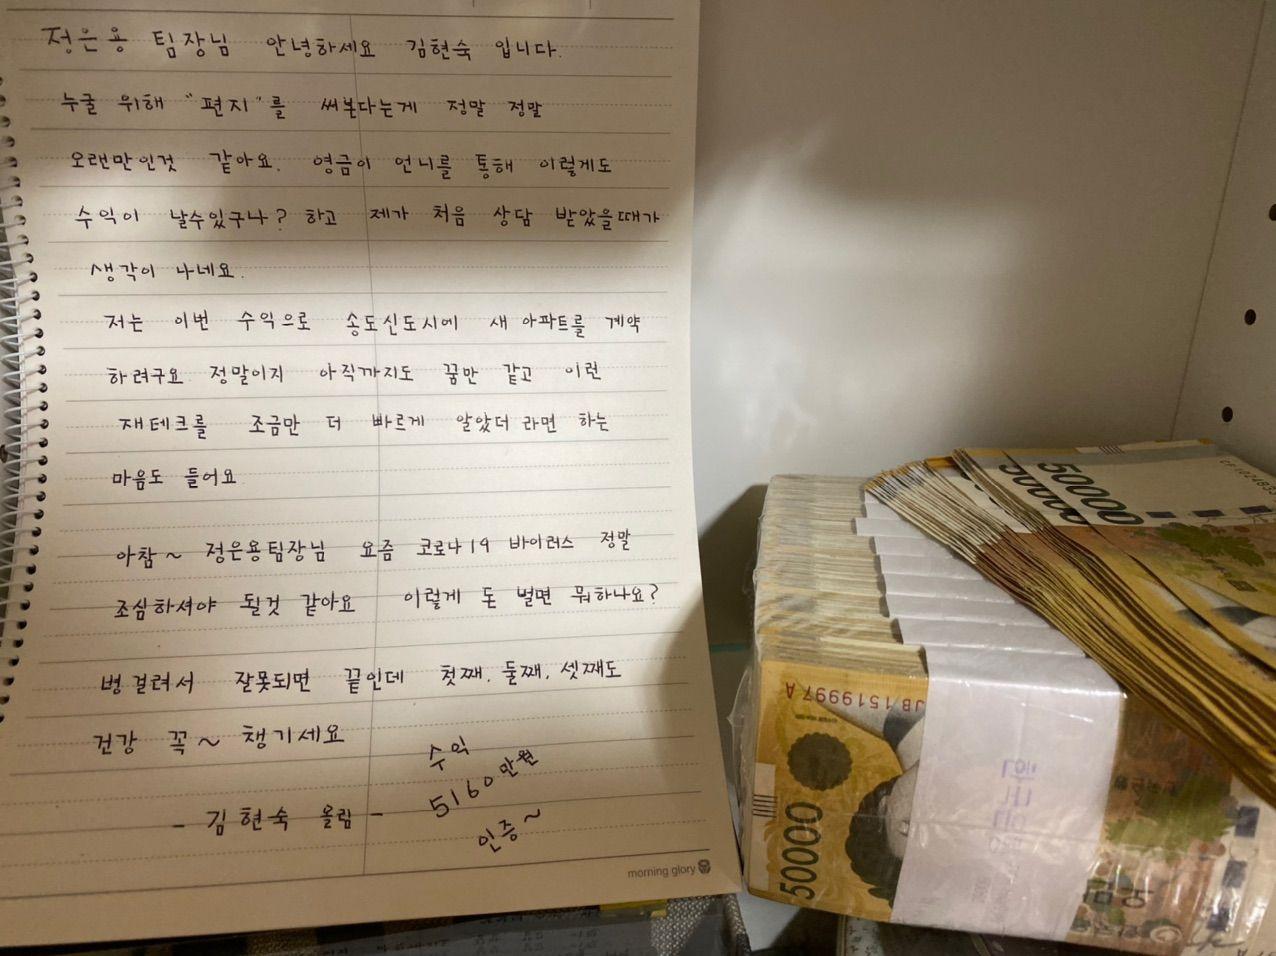 정은용 팀장님 안녕하세요 김현숙 입니다.
누굴 위해 "편지"를 써본다는게 정말 정말
오랜만인것 같아요. 영금이 언니를 통해 이렇게도
수익이 날수있구나? 하고 제가 처음 상담 받았을때가
생각이 나네요.
저는 이번 수익으로 송도신도시에 새 아파트를 계약
하려구요 정말이지 아직까지도 꿈만 같고 이런
재테크를 조금만 더 빠르게 알았더라면 하는
마음도 들어요
아참~ 정은용팀장님 요즘 코로나19 바이러스 정말
조심하셔야 될것 같아요 이렇게 돈 벌면 뭐하나요?
병걸려서 잘못되면 끝인데 첫째, 둘째, 셋째도
건강 꼭~ 챙기세요
수익
5160만원
인증~
- 김현숙 올림 -
morning glory
50000
50000
JB1519997A
50000